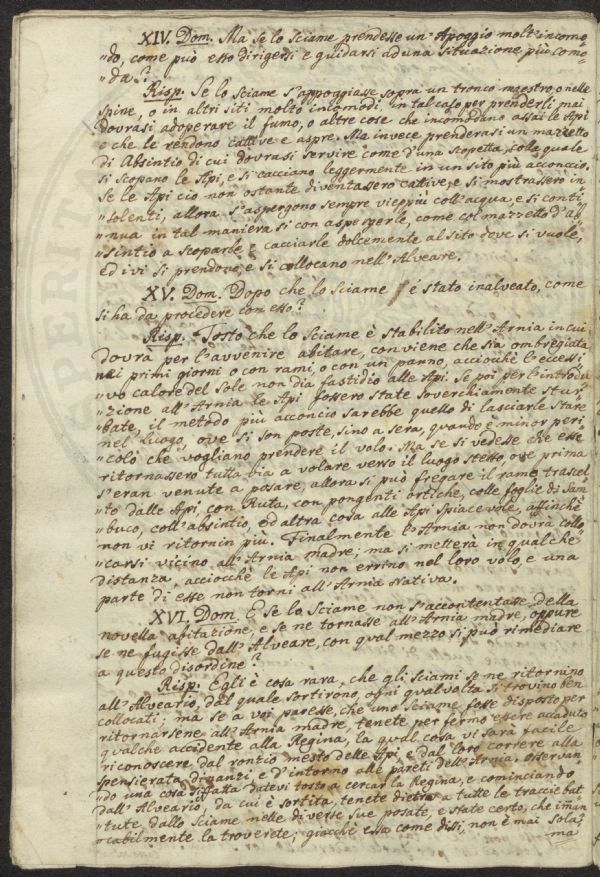 XIV. Dom. Ma se lo sciame prendesse un'Apoggio molt'incomo=
"do, come può esso dirigersi e guidarsi ad una situazione più como=
"da?
Risp. Se lo sciame s'appoggiasse sopra un tronco maestro, o nelle
spine, o in altri siti molto incomodi, in tal caso per prenderli mai
dovrasi adoperare il fumo, o altre cose che incomodano assai le Api
e che le rendono cattive e aspre. Ma invece prenderasi un mazzetto
di Absintio di cui dovrasi servire come d'una scopetta, colla quale
si scopano le Api, e si cacciano leggermente in un sito più acconcio.
Se le Api ciò non ostante diventassero cattive, e si mostrassero in=
"solenti, allora s'aspergono sempre vieppiù coll'acqua, e si conti=
"nua in tal maniera si con asperperle, come col mazzetto d'ab=
"sintio a scoparle e cacciarle dolcemente al sito dove si vuole,
ed ivi si prendono, e si collocano nell'Alveare.
XV. Dom. Dopo che lo sciame è stato inalveato, come
si ha da procedere con esso?
Risp. Tosto che lo Sciame è stabilito nell'Arnia in cui
dovrà per l'avvenire abitare, conviene che sia ombregiata
nei primi giorni o con rami, o con un panno, acciocchè l'eccessi=
vo calore del Sole non dia fastidio alle Api. Se poi per l'introdu=
"zione all'Arnia le Api fossero state soverchiamente stur=
"bate, il metodo più acconcio sarebbe quello di lasciarle stare
nel luogo, ove si son poste, sino a sera, quando è minor peri=
"colo che vogliano prendere il volo. Ma se si vedesse che esse
ritornassero tutta via a volare verso il luogo stesso ove prima
s'eran venute a posare, allora si può fregare il ramo trascel=
"to dalle Api, con Ruta, con pongenti ortiche, colle foglie di Sam=
"buco, coll'absintio, od altra cosa alle Api spiacevole, affinchè
non vi ritornin più. Finalmente l'Arnia non dovrà collo=
"carsi vicino all'Arnia madre; ma si metterà in qualche
distanza, acciocchè le Api non errino nel loro volo, e una
parte di esse non torni all'Arnia Nativa.
XVI. Dom. E se lo Sciame non s'accontentasse della
novella abitazione, e se ne tornasse all'Arnia madre, oppure
se ne fugisse dall'Alveare, con qual mezzo si può rimediare
a questo disordine?
Risp. Egli è cosa rara, che gli sciami se ne ritornino
all'Alveario, dal quale sortirono, ogni qual volta si trovino ben
collocati; ma se a voi paresse, che uno sciame fosse disposto per
ritornarsene all'Arnia madre, tenete per fermo essere accaduto
qualche accidente alla Regina, la qual cosa vi sarà facile
riconoscere dal rontio mesto delle Api, e dal loro correre alla
spensierata dinanzi, e d'intorno alle pareti dell'Arnia. Osservan=
"do una cosa siffatta datevi tosto a cercar la Regina, e cominciando
dall'Alveario, da cui è sortita, tenete dietro a tutte le traccie bat=
"tute dallo Sciame nelle diverse sue posate, e state certo, che iman=
"cabilmente la troverete; giacchè essa come dissi, non è mai sola;
ma